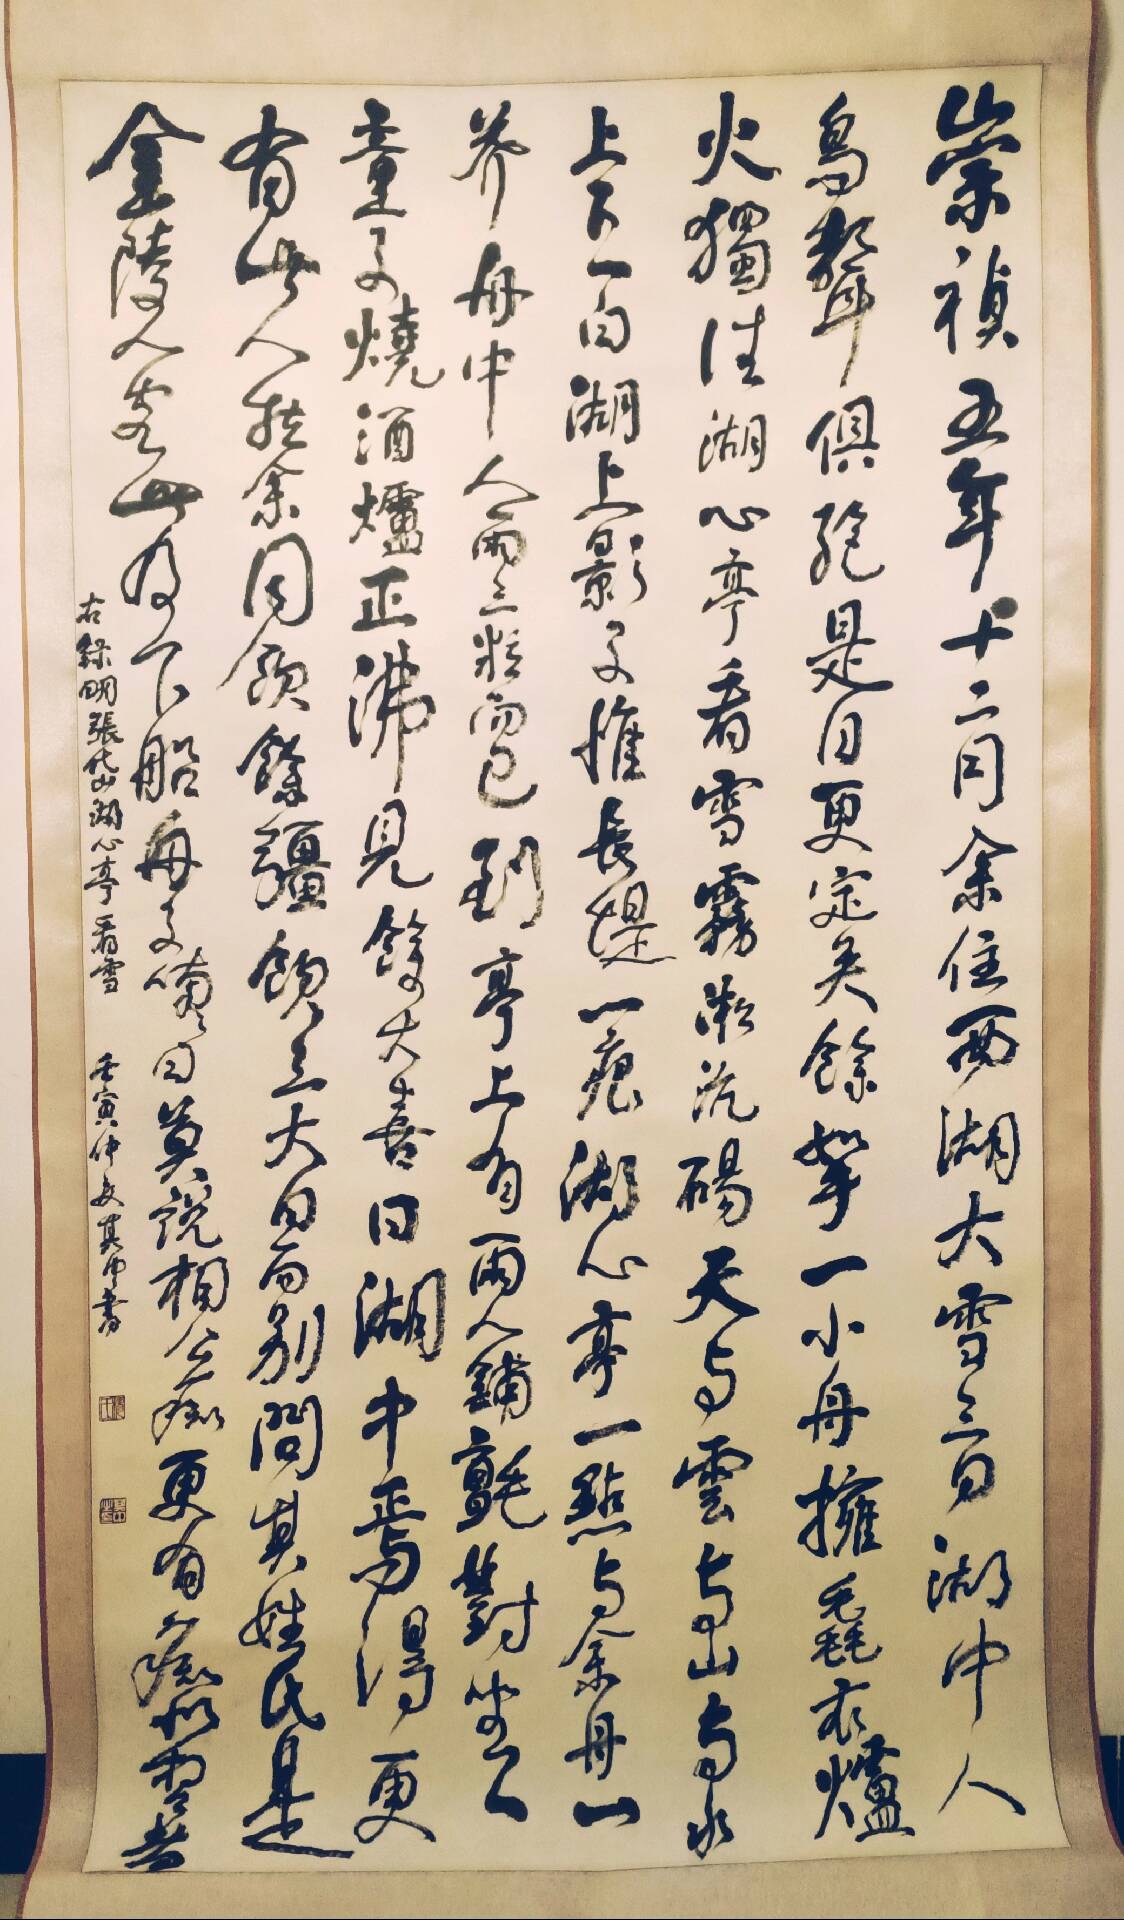 崇禎五年十二月余住西湖大雪三日湖中人
鳥聲俱絶是日更定矣餘拏一小舟擁毳衣爐
火獨往湖心亭看雪霧凇沆碭天与雲与山与水
上下一白湖上影子惟長堤一痕湖心亭一點与余舟一
芥舟中人兩三粒而已到亭上有兩人鋪氈對坐一
童子燒酒爐正沸見餘大喜曰湖中焉得更
有此人拉余同飲餘彊飲三大白而別問其姓氏是
金陵人客此及下船舟子喃喃曰莫說相公痴更有痴似相公者
右錄明張岱湖心亭看雪 壬寅仲夏其中書